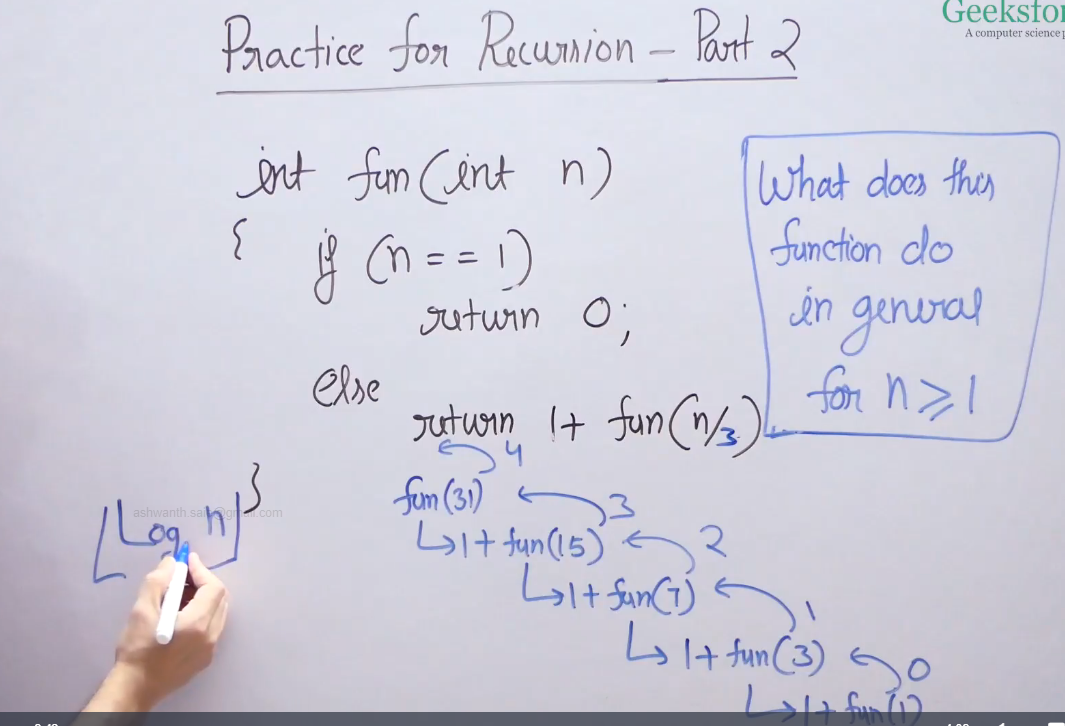 Geeksfor
A computer science p
Practice for Recursion – Part 2
int fun(int n)
{
if (n == 1)
return 0;
else
return 1+ fun(n/3)
}
What does this
function do
in general
for n ≥ 1
4
fun(31)
3
↳ 1+ fun(15)
2
↳ 1+ fun(7)
1
↳ 1+ fun(3)
0
↳ 1+ fun(1)
⌊Log n⌋